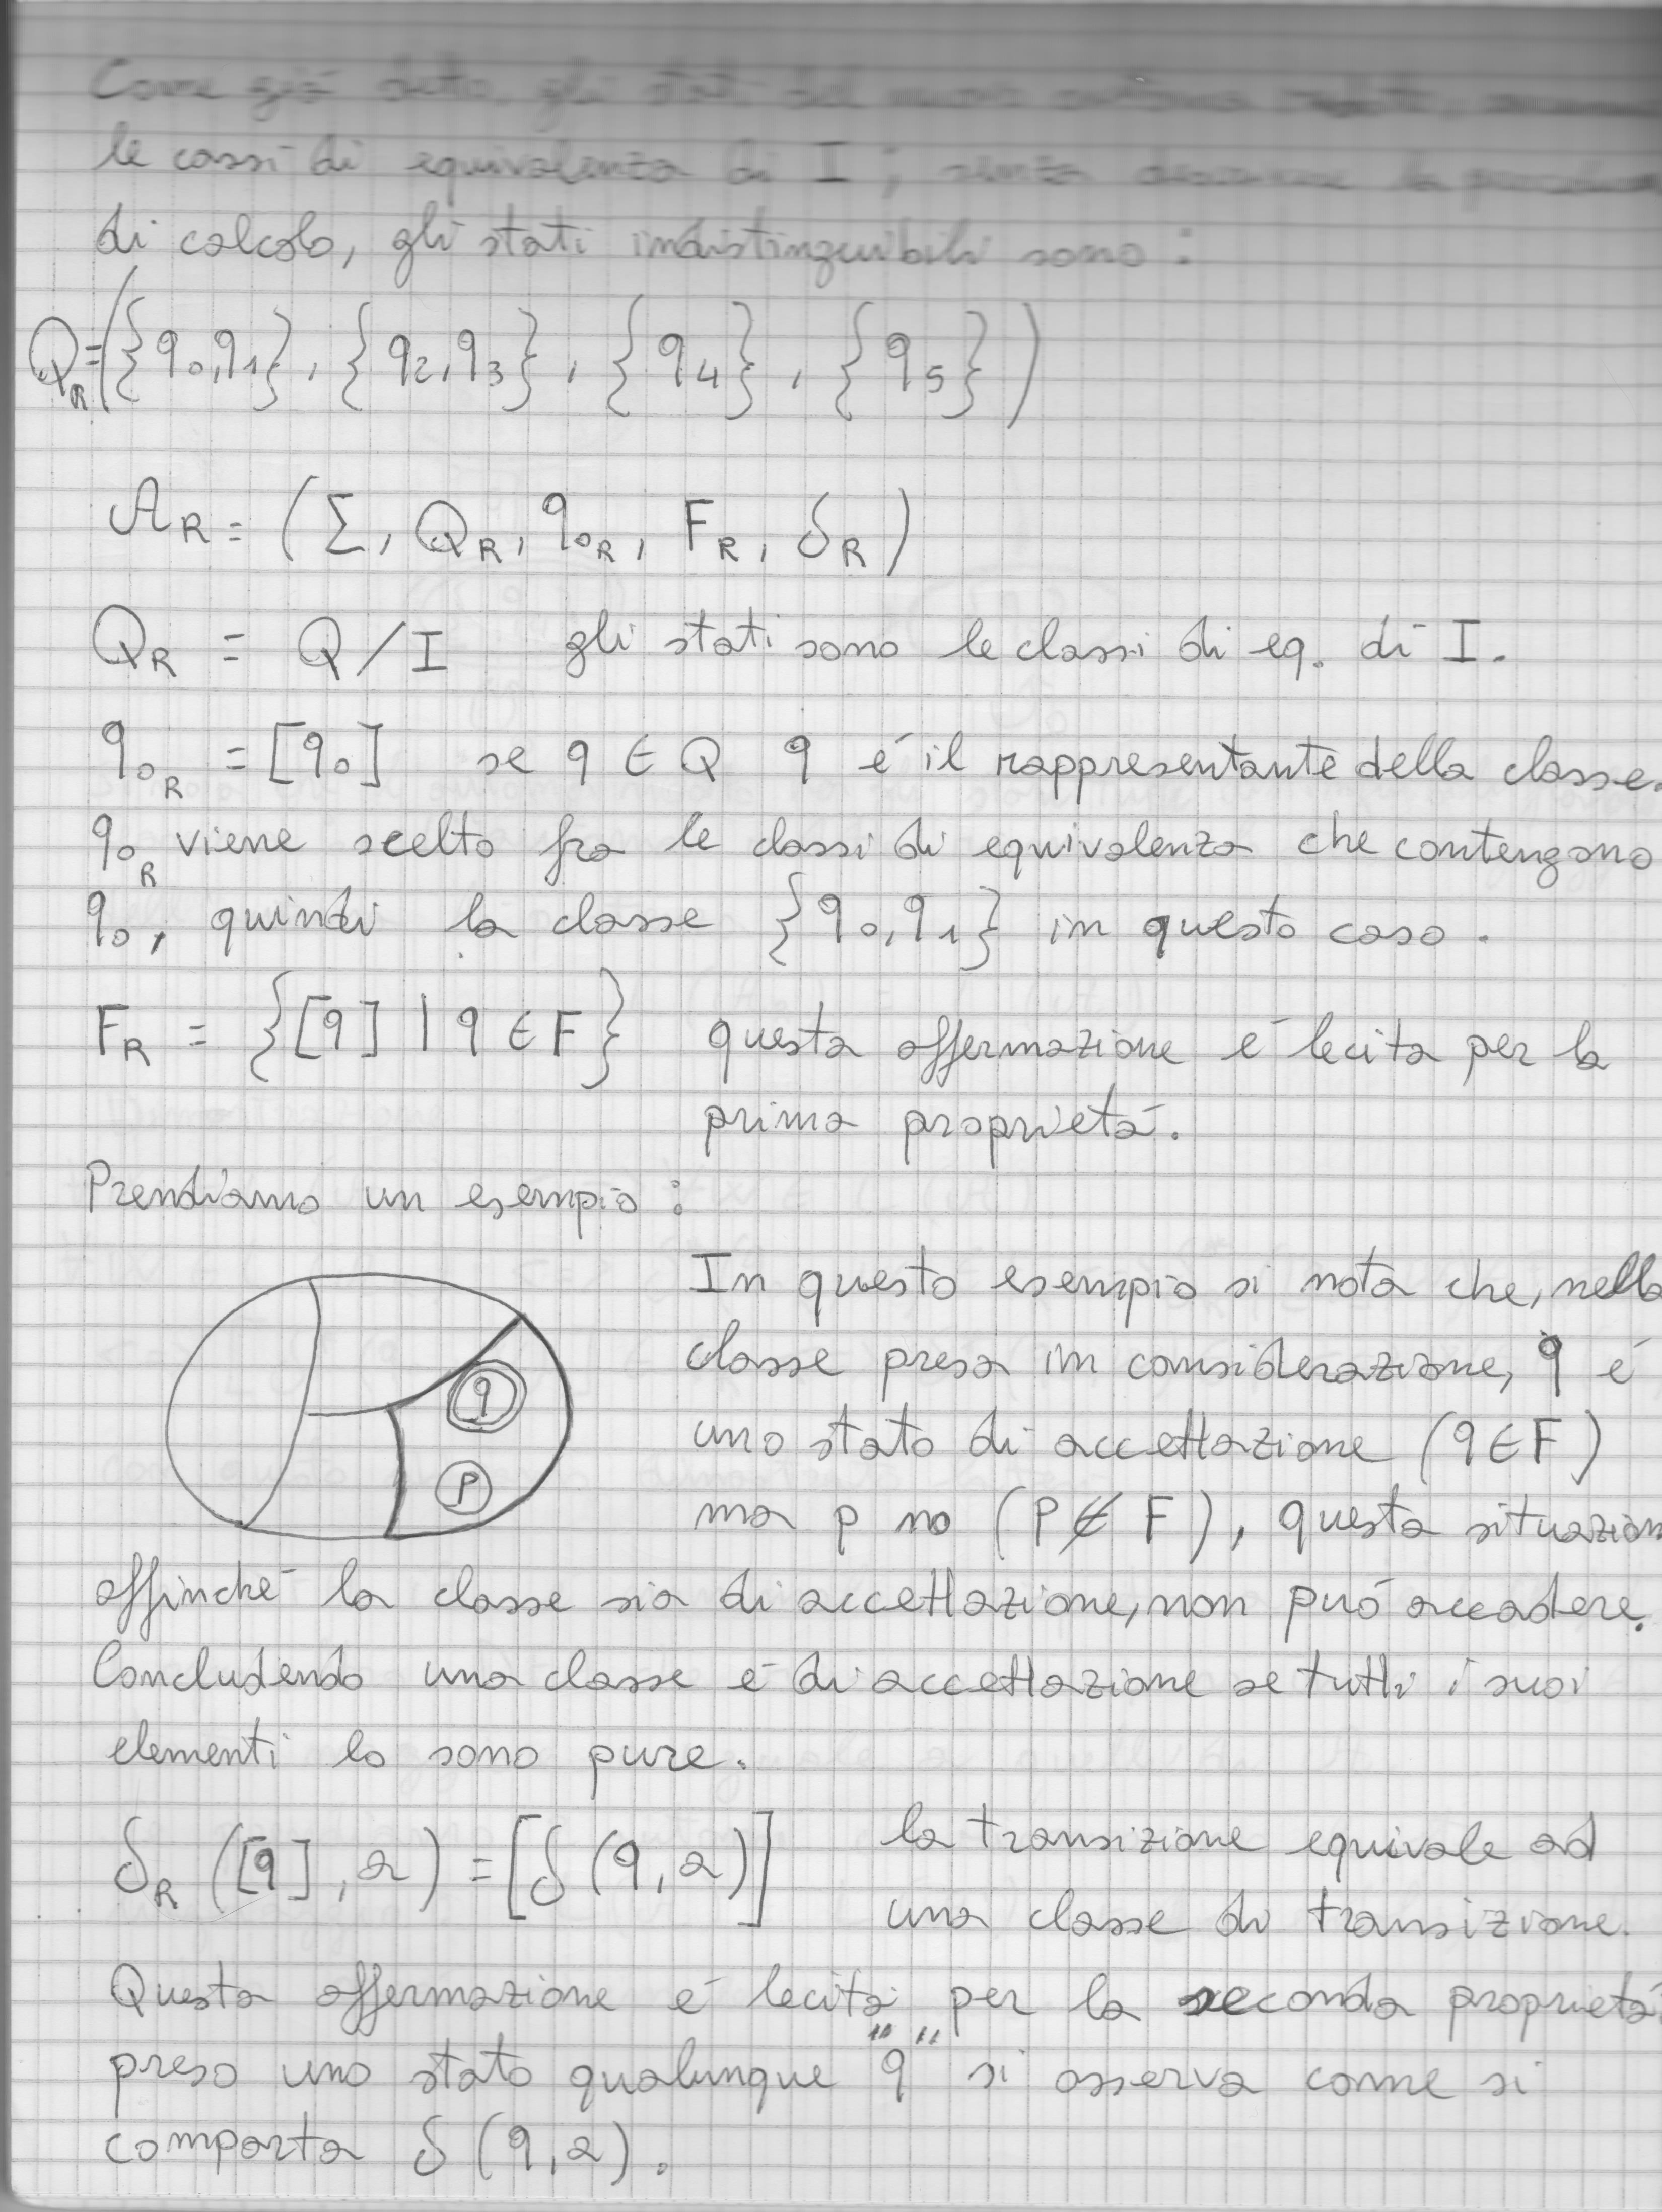 Come già detto, gli stati del nuovo automa
le cassi di equivalenza di I ; senza la
di calcolo, gli stati indistinguibili sono :
Q_R = ( {q0,q1} , {q2,q3} , {q4} , {q5} )
A_R = ( Σ, Q_R, q0_R, F_R, δ_R )
Q_R = Q/I gli stati sono le classi di eq. di I.
q0_R = [q0] se q ∈ Q q é il rappresentante della classe.
q0_R viene scelto fra le classi di equivalenza che contengono
q0, quindi la classe {q0,q1} in questo caso.
F_R = {[q] | q ∈ F} questa affermazione é lecita per la
prima proprietá.
Prendiamo un esempio :
In questo esempio si nota che, nella
classe presa in considerazione, q é
q
uno stato di accettazione (q ∈ F)
p
ma p no (p ∉ F), questa situazion
affinché la classe sia di accettazione, non puó accadere.
Concludendo una classe é di accettazione se tutti i suoi
elementi lo sono pure.
δ_R ([q], a) = [δ(q,a)] la transizione equivale ad
una classe di transizione.
Questa affermazione é lecita per la seconda proprietá
preso uno stato qualunque "q" si osserva come si
comporta δ(q,a).